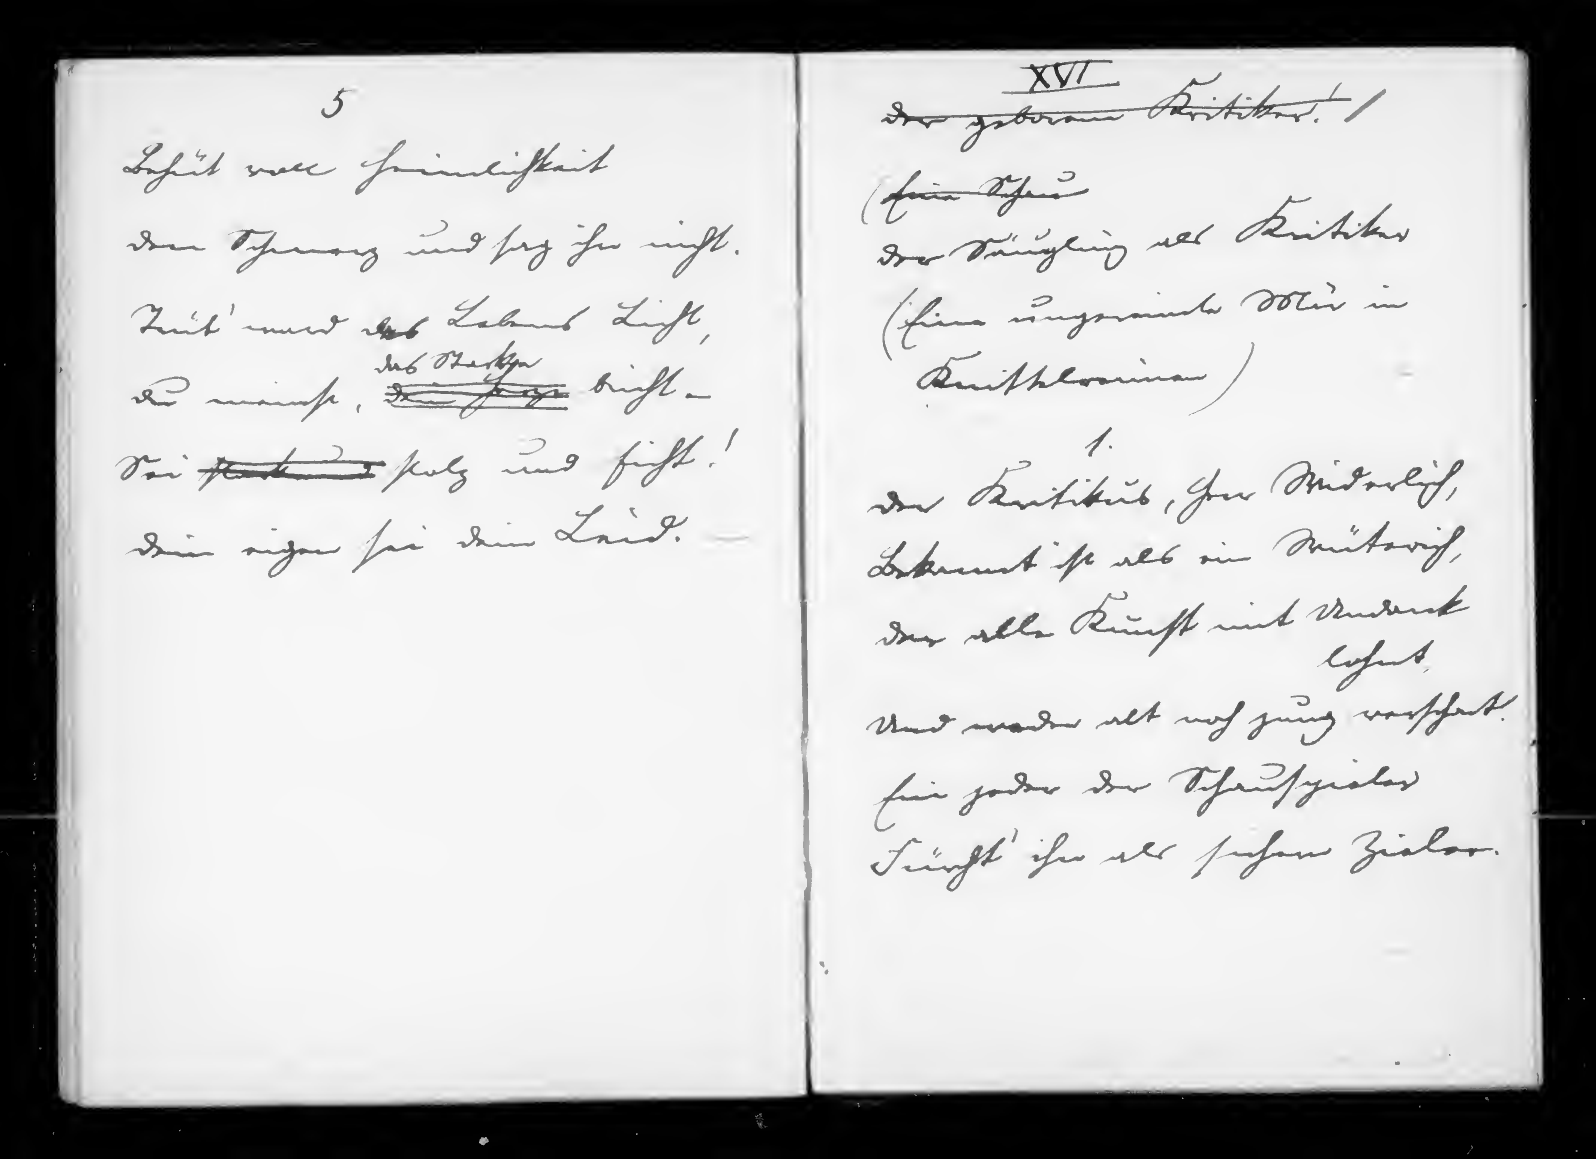 5
Behüt voll Heimlichkeit
den Schmerz und sag ihn nicht.
Trüb' ward des Lebens Licht,
das Starke
du meinst, dein Herze bricht –
Sei stark und stolz und ficht!
dein eigen sei dein Leid. —
XVI
der geborene Kritiker!
(Eine Schau
der Säugling als Kritiker
(Eine ungereimte Mär in
Knittelreimen)
1.
der Kritikus, Herr Widerlich,
Bekannt ist als ein Wüterich,
der alle Kunst mit Undank
lohnt,
Und weder alt noch jung verschont.
Ein jeder der Schauspieler
Fürcht' ihn als sichern Zieler.